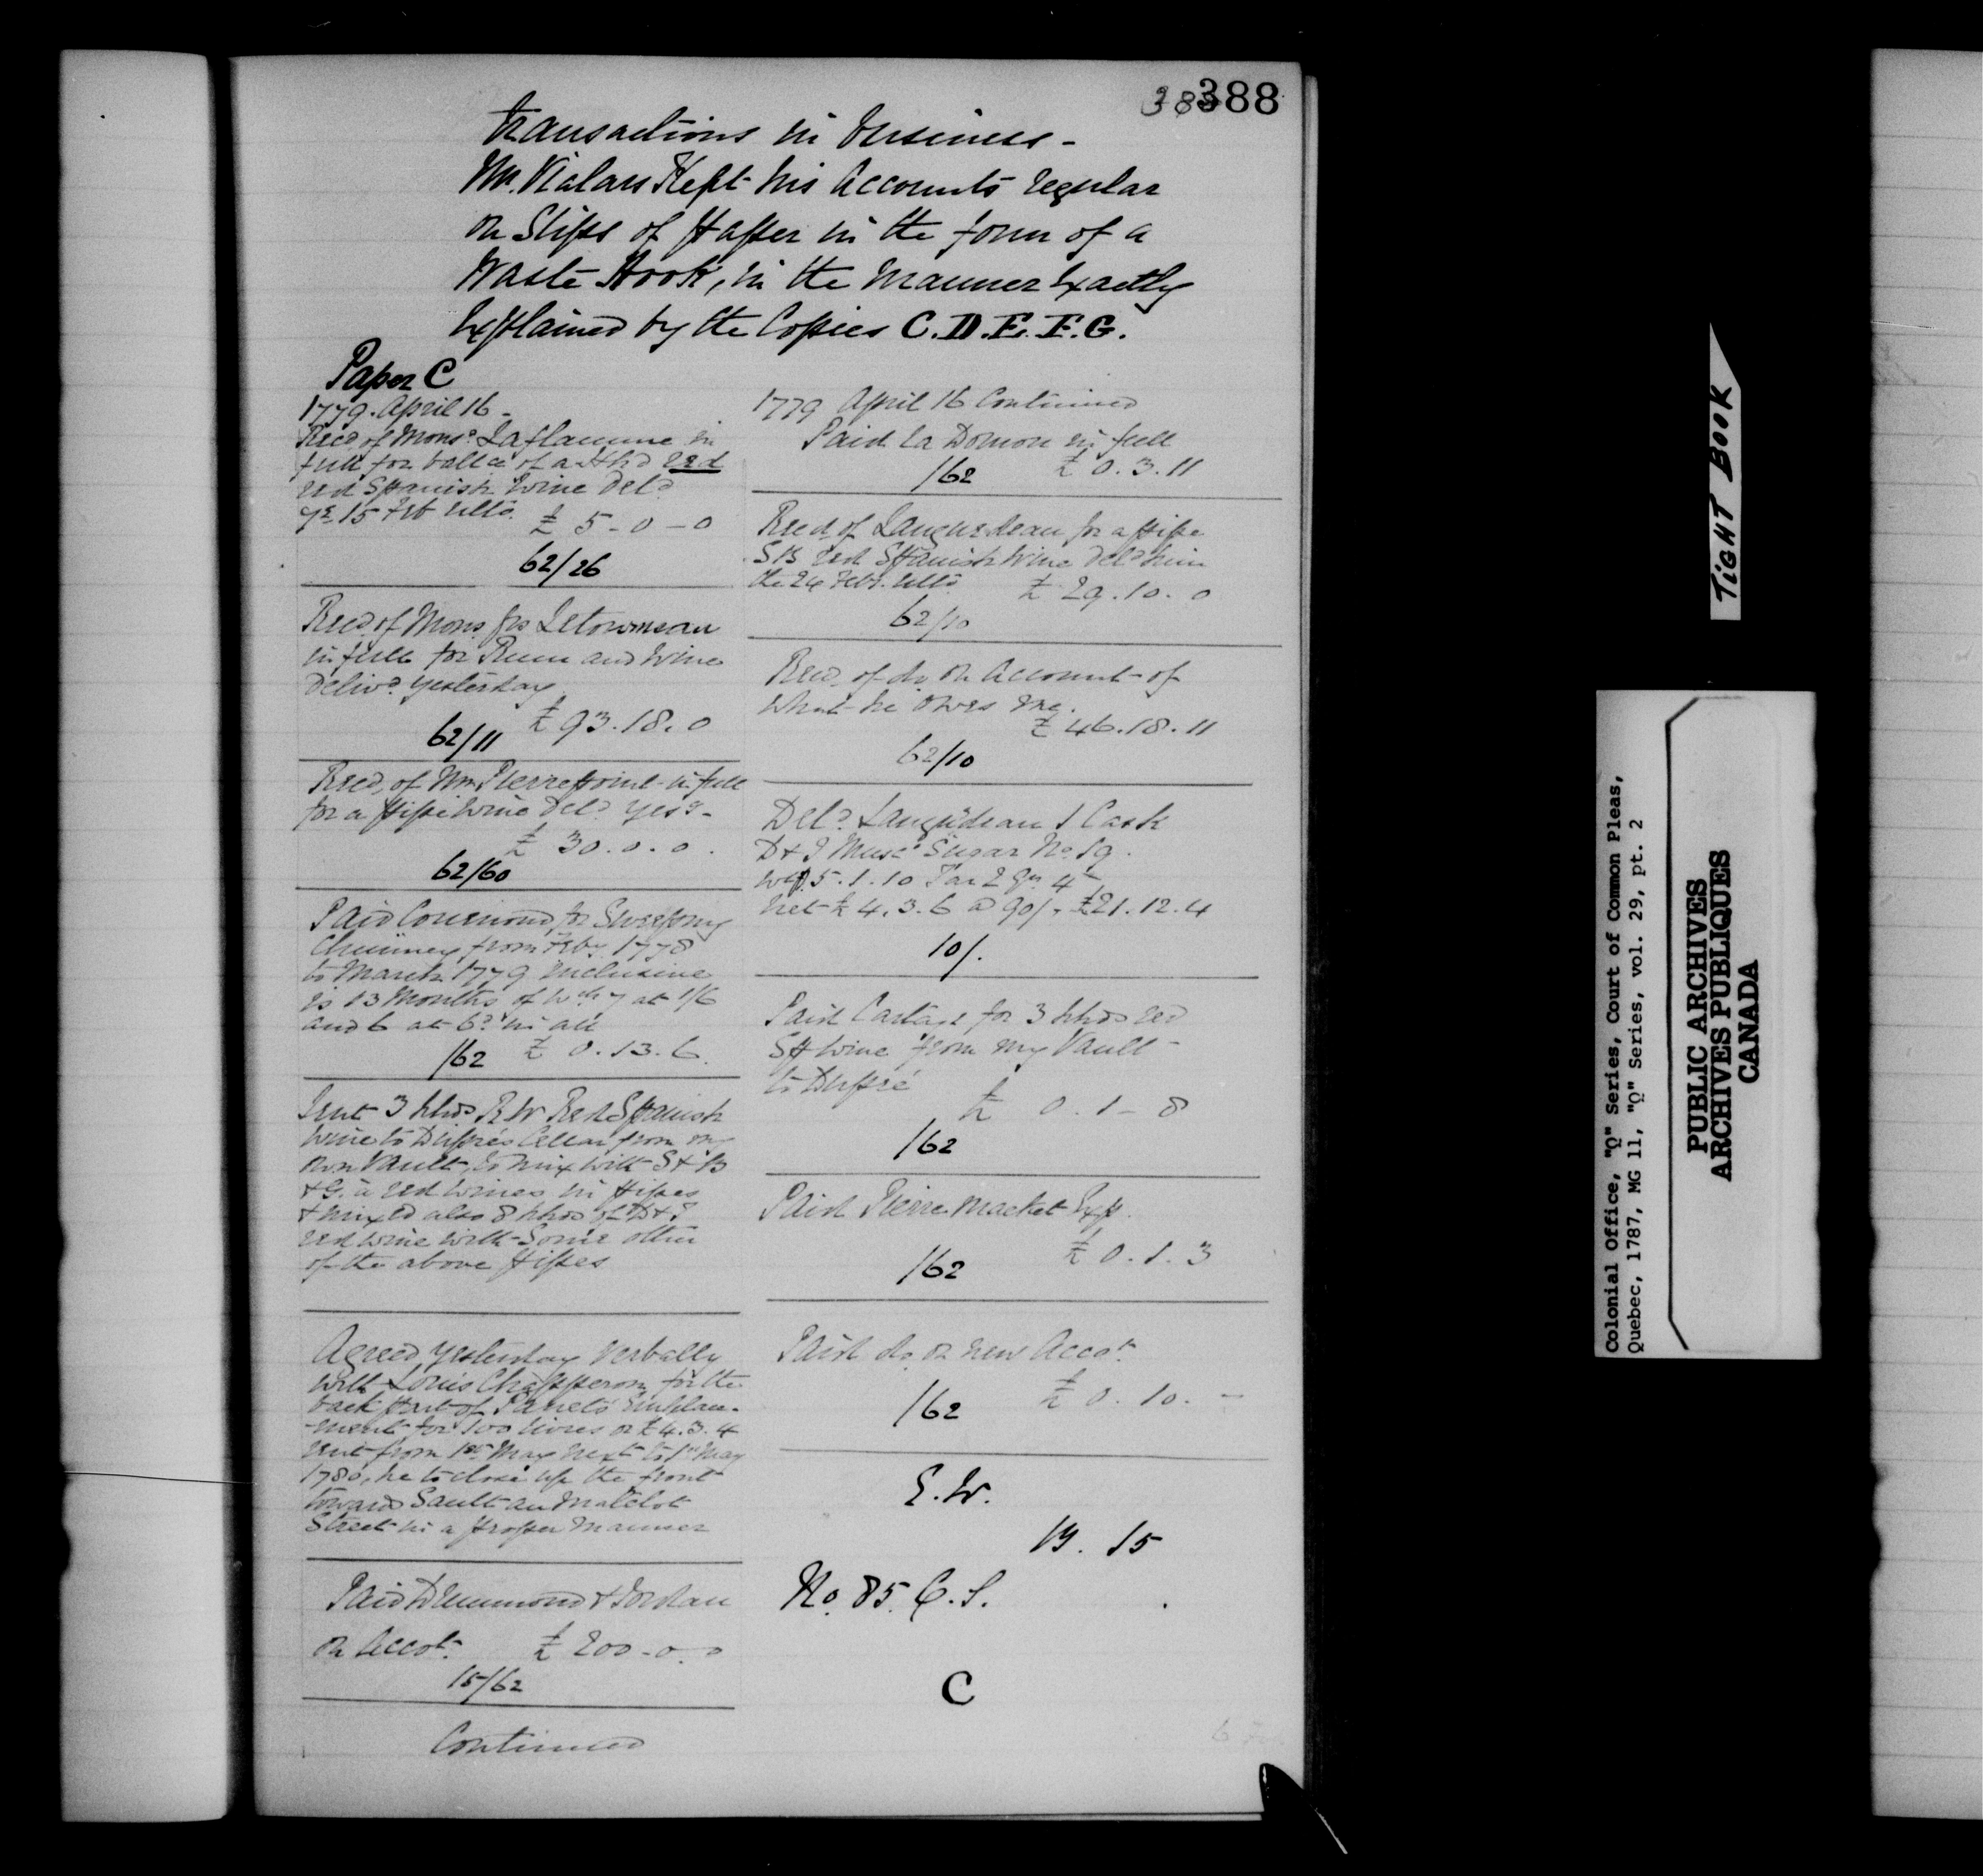 388
transactions in business -
Mr. Vialars Kept his Accounts regular
on Slips of Paper in the form of a
Waste Book, in the manner exactly
explained by the Copies C.D.E.F.G.
Paper C
1779. April 16 -
Recd of Monsr. Laflamme in
full for ballce of a Hhd red
red Spanish Wine Deld
ye 15 Feb ulto. £ 5-0-0
62/26
Recd of Mons frs Letourneau
in full for Rum and Wine
delivd yesterday
£ 93.18.0
62/11
Recd, of Mr. Pierrepoint in full
for a pipe wine Deld yesy -
£ 30.0.0.
62/60
Paid for Sweeping
Chimney from Feby. 1778
to March 1779 inclusive
is 13 Months of wch 7 at 1/6
and 6 at 6d in all
/62 £ 0.13.6.
Sent 3 hhds R W Red Spanish
wine to Dupré's Cellar from my
own Vault, to mix with S & B
& G. a red wines in pipes
& mixed also 8 hhds of D & J
red wine with Some other
of the above pipes
Agreed yesterday verbally
with Louis Chapperon for the
back part of Panet's Emplace-
-ment for 100 livres or £4.3.4
rent from 1st May next to 1st May
1780, he to close up the front
towards Sault au Matelot
Street in a proper manner
Paid Drummond & Jordan
on Accot. £ 200-0-0
15/62
Continued
1779 April 16 Continued
Paid la Domon in full
/62 £ 0.3.11
Recd of Languedeau for a pipe
S B red Spanish Wine deld him
the 24 Feby. ulto.
£ 29.10.0
62/10
Recd of do on Account of
what he owes me.
£ 46.18.11
62/10
Deld. Languedeau 1 Cask
D & J Musco Sugar No. 19.
wt. 5.1.10 Tar 2 qrs 4
net £ 4.3.6 @ 90/- £21.12.4
10/.
Paid Cartage for 3 hhds red
Sp wine from my Vault -
to Dupré
£ 0.1-8
/62
Paid Pierre market Exp.
£ 0.1.3
/62
Paid do on new Accot.
/62 £ 0.10.-
E.W.
19. 15
No. 85. C.S.
C
TIGHT BOOK
Colonial Office, "Q" Series, Court of Common Pleas,
Quebec, 1787, MG 11, "Q" Series, vol. 29, pt. 2
PUBLIC ARCHIVES
ARCHIVES PUBLIQUES
CANADA